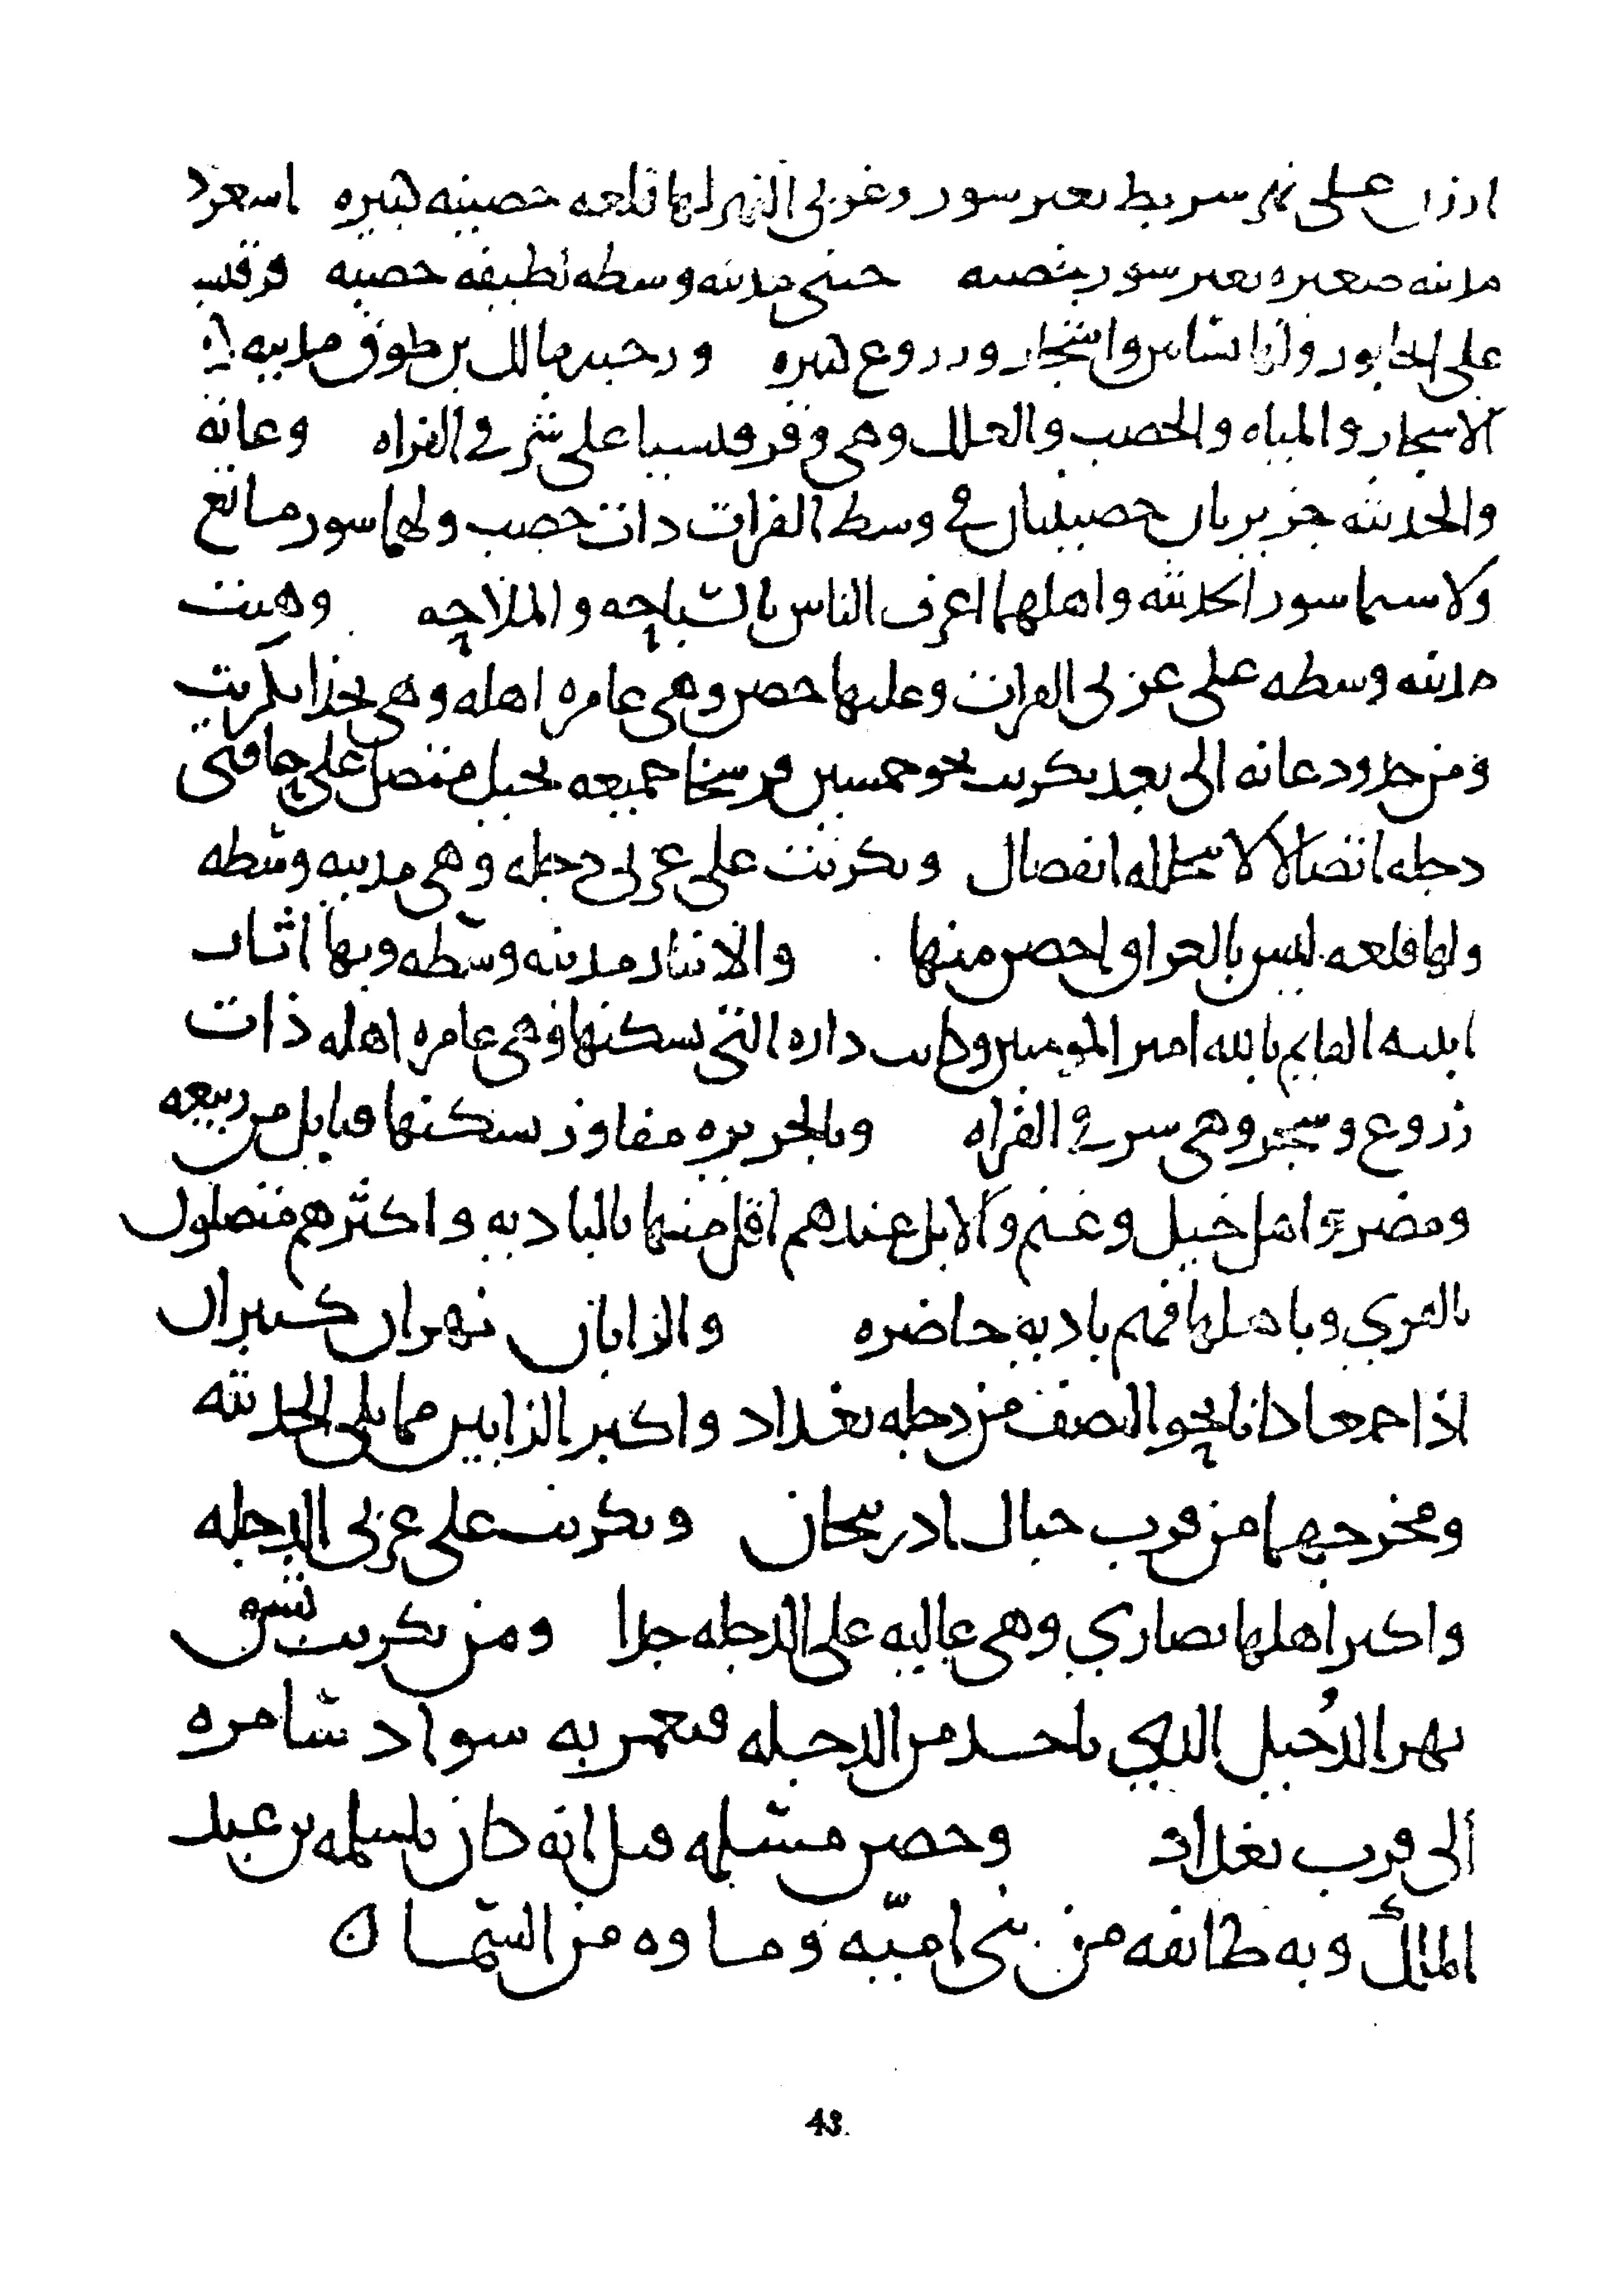 ارزن على نهر سربط بغير سور وغربي النهر لها قلعه حصينه كبيره اسعرد
مدينه صغيره بغير سور خصبه حيني مدينه وسطه لطيفه خصبه قرقيسيا
على الخابور ولها بساتين واشجار وزروع كثيره ورحبه مالك بن طوق مدينه كثيره
الاشجار والمياه والخصب والغلال وهي وقرقيسيا على شرقي الفراه وعانه
والحديثه جزيرتان خصيبتان في وسط الفرات ذات خصب ولهما سور مانع
ولاسيما سور الحديثه واهلهما اعرف الناس بالسباحه والملاحه وهيت
مدينه وسطه على غربي الفرات وعليها حصن وهي عامره اهله وهي بحذا تكريت
ومن حدود عانه الى بعد تكريت نحو خمسين فرسخا جميعه بجبل متصل على حافتي
دجله اتصالا لا له انفصال وتكريت على غربي دجله وهي مدينه وسطه
ولها قلعه ليس بالعراق احصن منها والانبار مدينه وسطه وبها اثار
ابنيه القايم بالله امير المومنين وكانت داره التي يسكنها وهي عامره اهله ذات
زروع وشجر وهي شرقي الفراه وبالجزيره مفاوز يسكنها قبايل من ربيعه
ومضر واهل خيل وغنم والابل عندهم اقل منها بالباديه واكثرهم متصلون
بالقري وباهلها فهم باديه حاضره والزابان نهران كبيران
اذا جمعا كانا نحو النصف من دجله بغداد واكبر الزابين مما يلي الحديثه
ومخرجهما من قرب جبال ادربيجان وتكريت على غربي الدجله
واكثر اهلها نصاري وهي عاليه على الدجله جدا ومن تكريت تشق
نهر الدُجيل الذي ياخد من الدجله فيعمر به سواد سامره
الى قرب بغداد وحصن مسلمه قيل انه كان لمسلمه بن عبد
الملك وبه طائفه من بني اميّه وماوه من السما
43